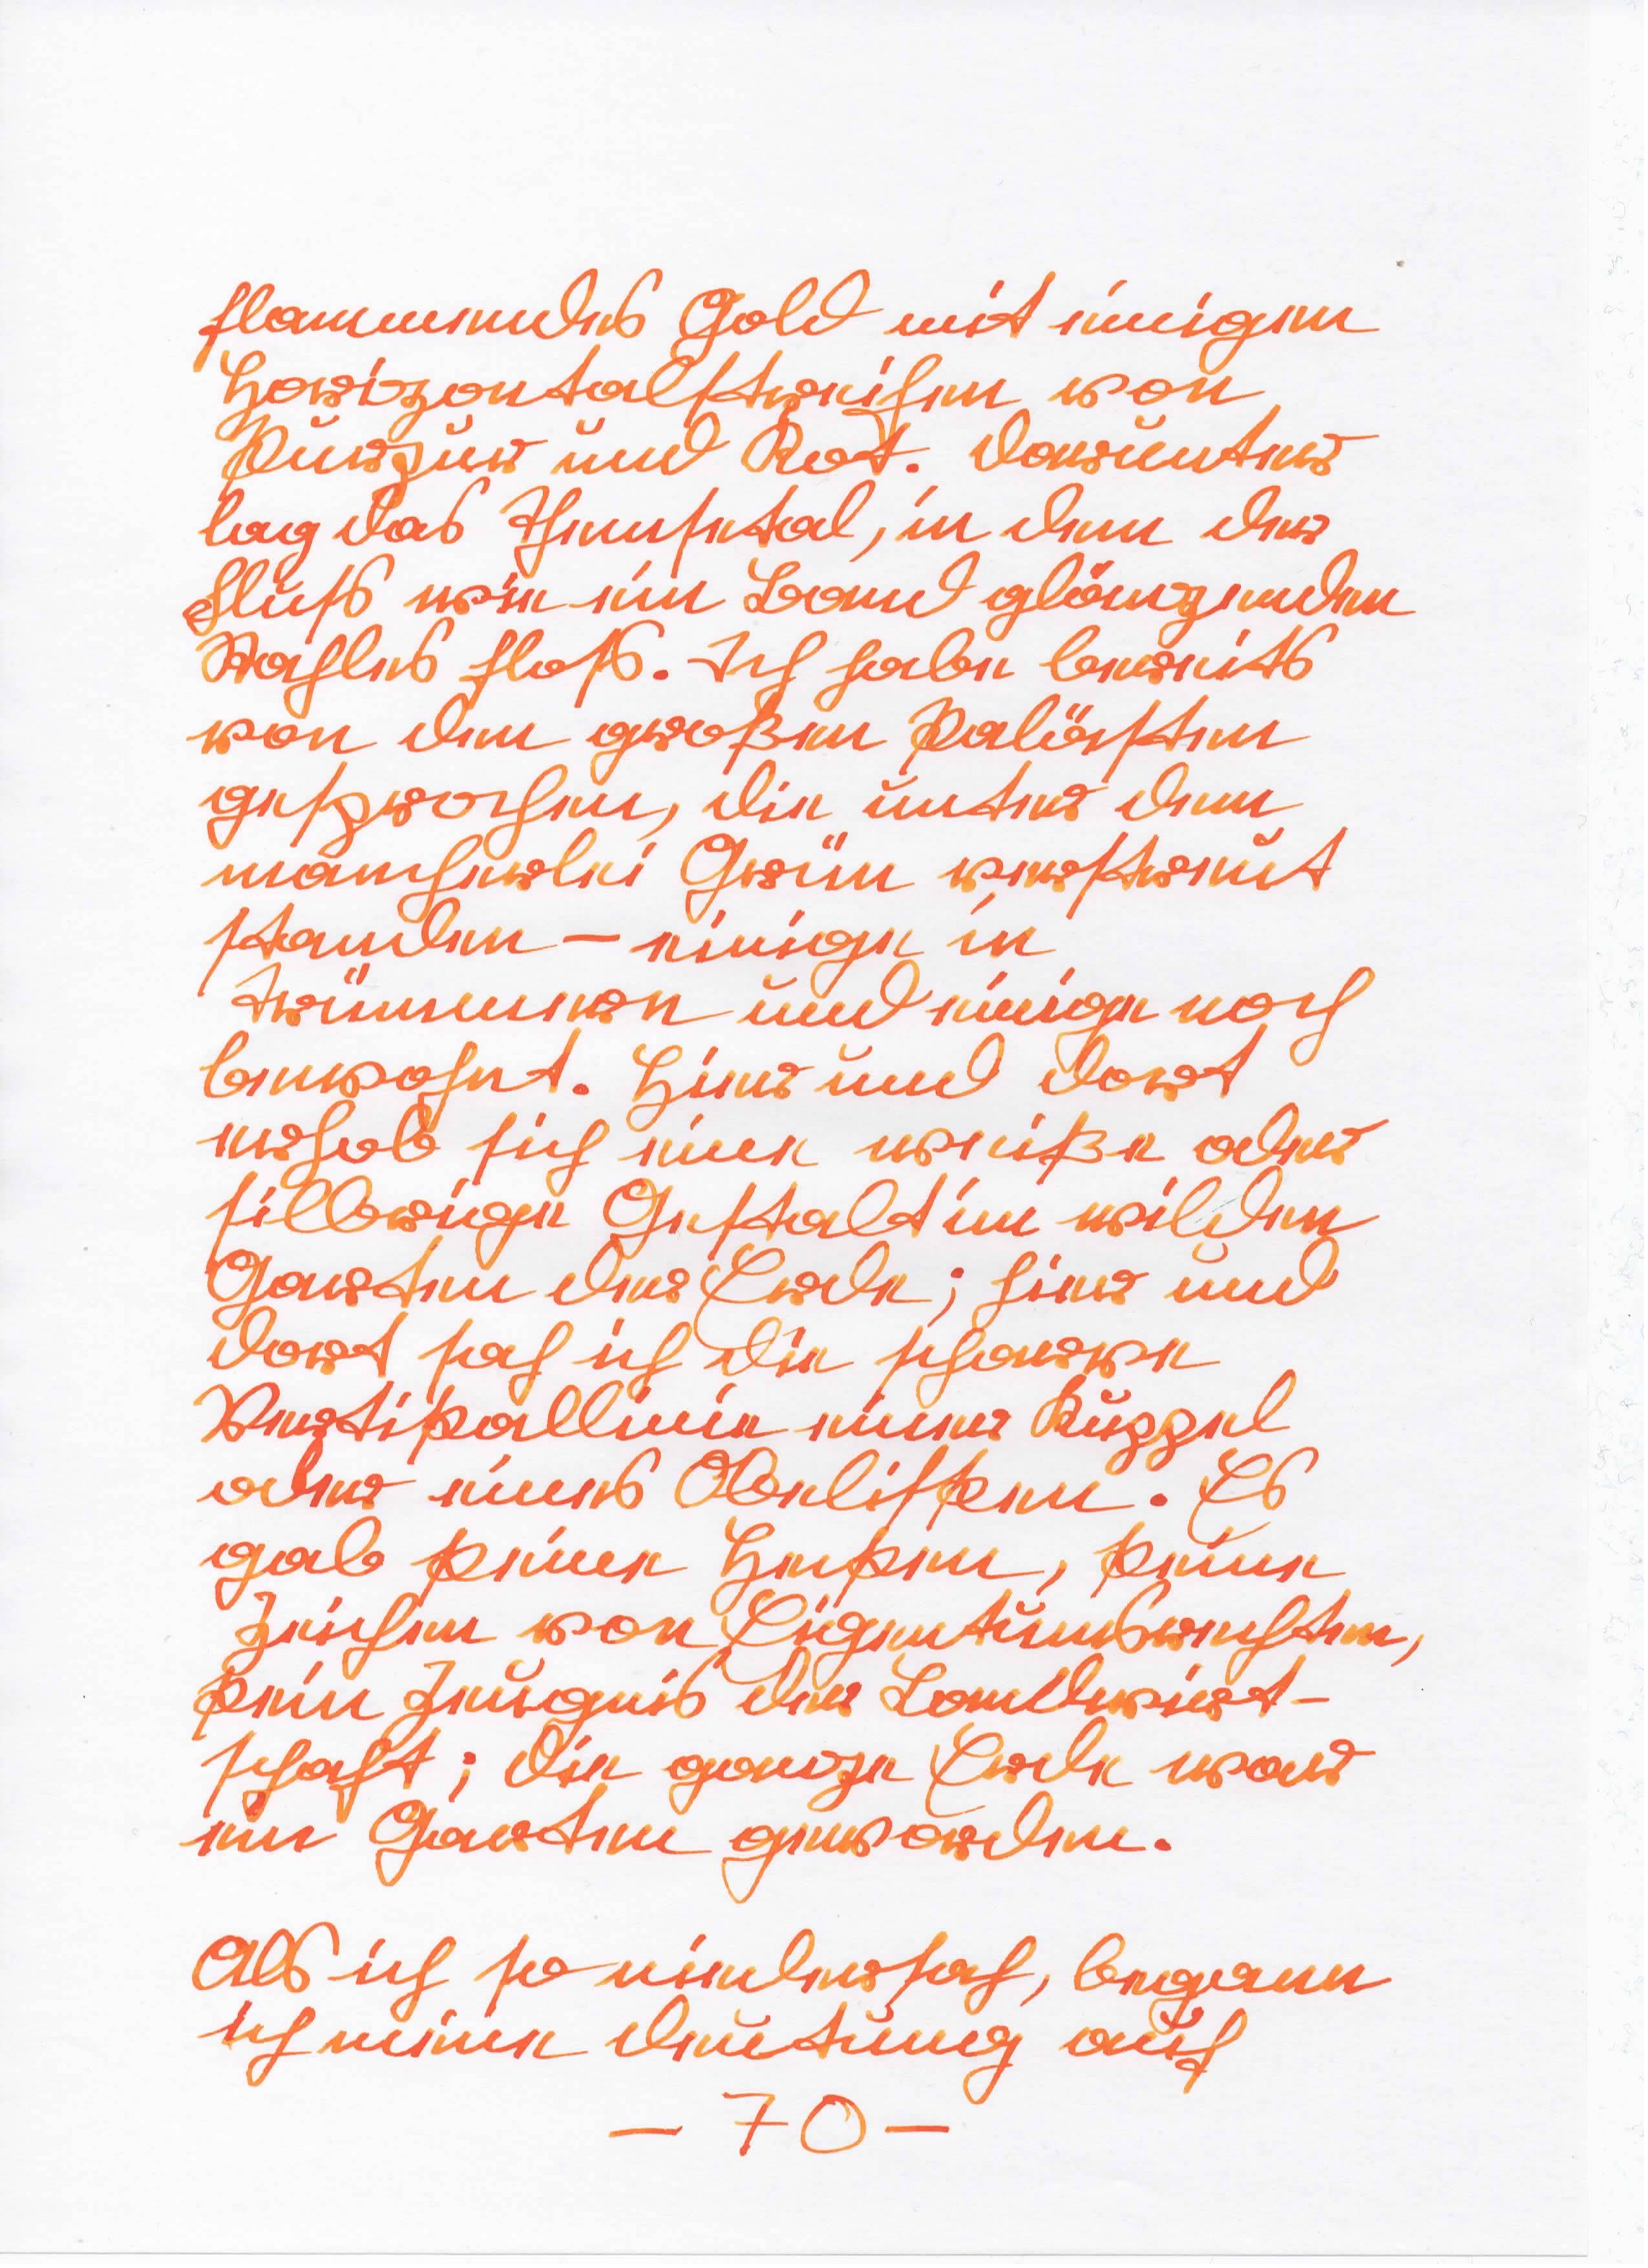 flammendes Gold mit einigen
Horizontalstreifen von
Purpur und Rot. Darunter
lag das Themsetal, in dem der
Fluss wie ein Band glänzenden
Stahles floss. Ich habe bereits
von den großen Palästen
gesprochen, die unter dem
mancherlei Grün verstreut
standen – einige in
Trümmern und einige noch
bewohnt. Hier und dort
erhob sich eine weiße oder
silbrige Gestalt im wilden
Garten der Erde; hier und
dort sah ich die scharfe
Vertikallinie einer Kuppel
oder eines Obelisken. Es
gab keine Hecken, keine
Zeichen von Eigentumsrechten,
kein Zeugnis der Landwirt-
schaft; die ganze Erde war
ein Garten geworden.
Als ich so niedersah, begann
ich meine Deutung auf
– 70 –